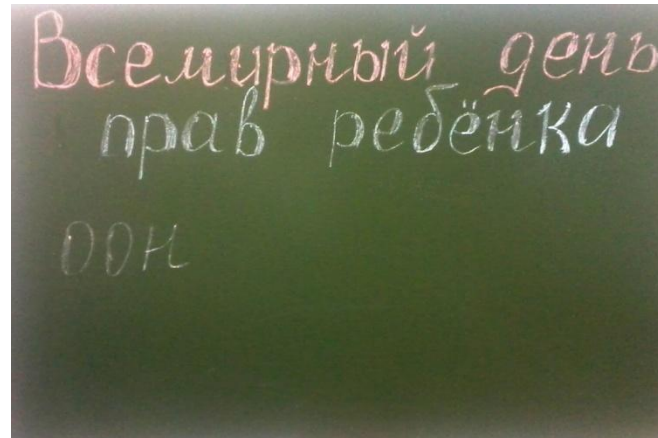 Всемирный день
прав ребёнка
оон